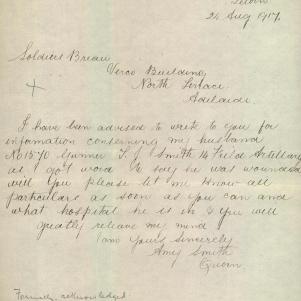 Quorn
24 Aug 1917.
Soldiers Bureau
Verco Building,
North Terrace
Adelaide
I have been advised to write to you for
information concerning my husband
Gunner Smith 14 Field Artillary
as I got word to say he was wounded
will you please let me know all
particulars as soon as you can and
what hospital he is in & you will
greatly releave my mind
I am Yours Sincerely
Amy Smith
Quorn
Formally acknowledged